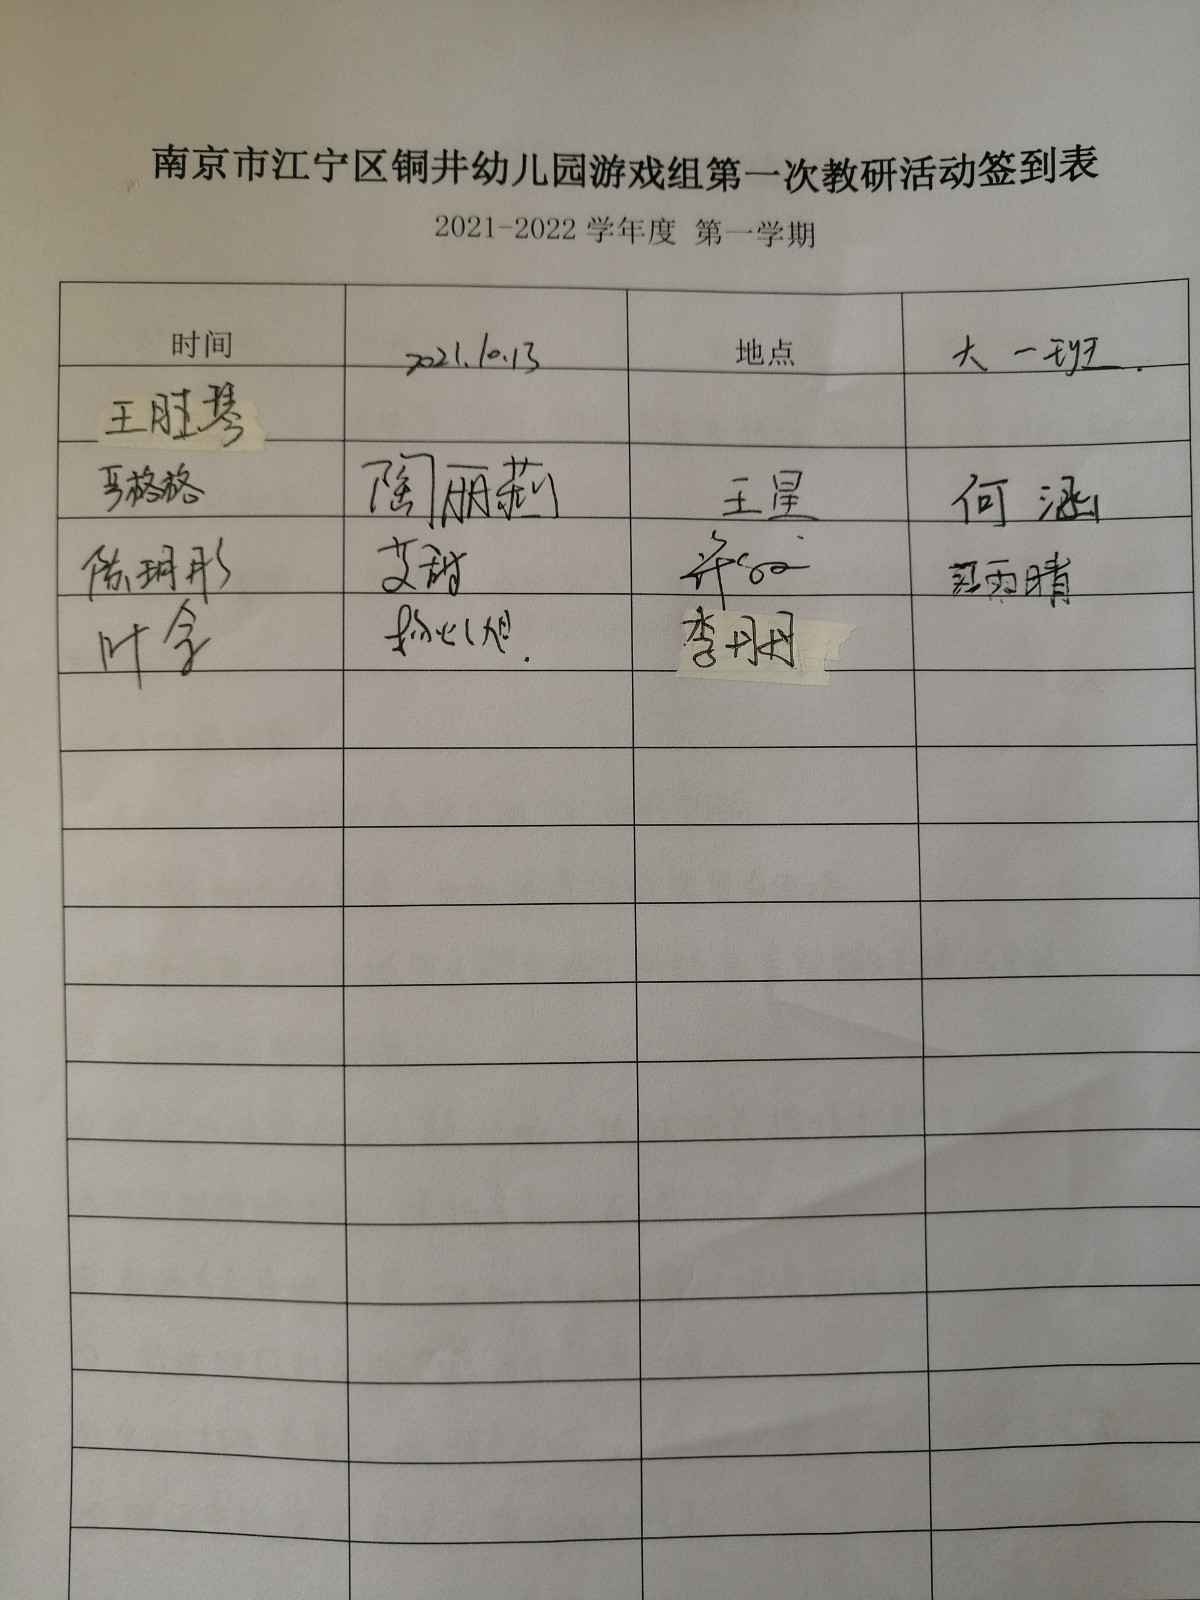 南京市江宁区铜井幼儿园游戏组第一次教研活动签到表
2021-2022 学年度 第一学期
时间 2021.10.13 地点 大一班.
王胜琴
格格 陶丽莉 王星 何涵
陈玥彤 艾甜 雨晴
叶 李丹丹